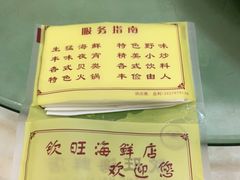 服务指南
生猛海鲜 特色野味
丰海夜宵 精美小炒
各式煲类 各式饮料
特色火锅 丰俭由人
钦旺海鲜店
欢迎您